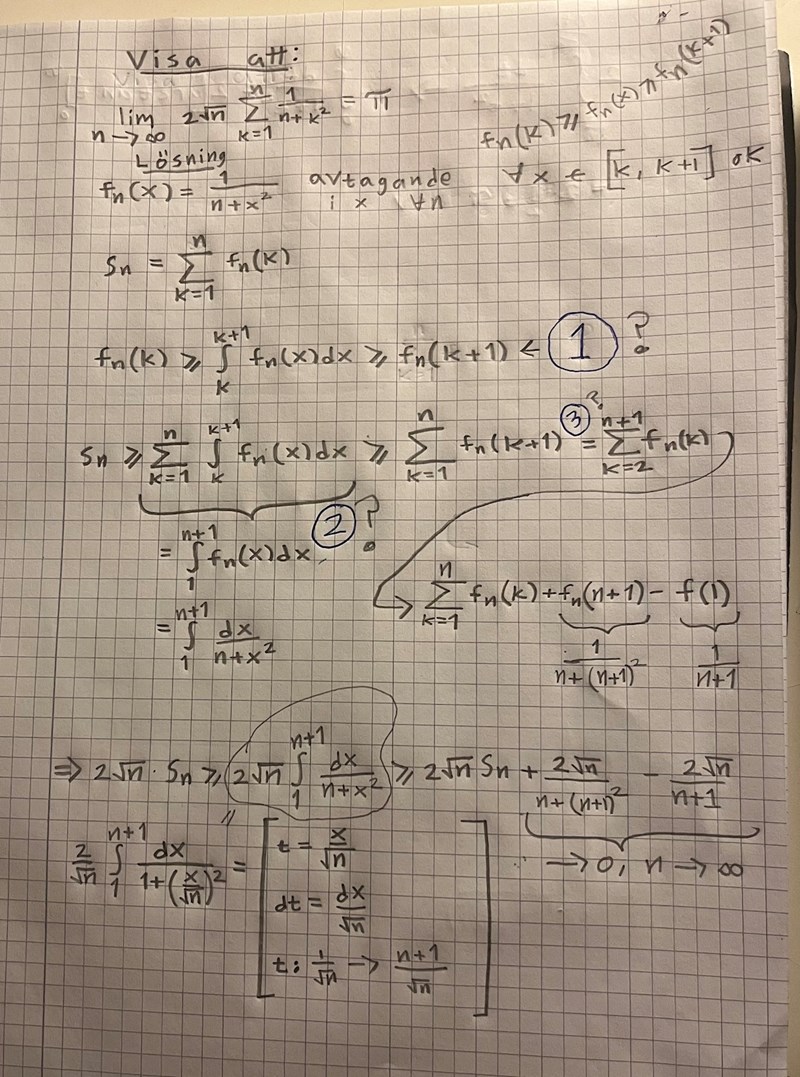 Visa att:
lim n→∞ 2√n ∑_{k=1}^{n} 1/(n+k²) = π
fn(k) ≥ fn(x) ≥ fn(k+1)
Lösning
fn(x) = 1/(n+x²) avtagande i x ∀n
∀x ∈ [k, k+1] ok
Sn = ∑_{k=1}^{n} fn(k)
fn(k) ≥ ∫_{k}^{k+1} fn(x)dx ≥ fn(k+1) ← ① ?
Sn ≥ ∑_{k=1}^{n} ∫_{k}^{k+1} fn(x)dx ≥ ∑_{k=1}^{n} fn(k+1) ③ ? = ∑_{k=2}^{n+1} fn(k)
= ∫_{1}^{n+1} fn(x)dx ② ?
→ ∑_{k=1}^{n} fn(k) + fn(n+1) - f(1)
= ∫_{1}^{n+1} dx/(n+x²)
1/(n+(n+1)²) 1/(n+1)
⇒ 2√n · Sn ≥ 2√n ∫_{1}^{n+1} dx/(n+x²) ≥ 2√n Sn + 2√n/(n+(n+1)²) - 2√n/(n+1)
→ 0, n → ∞
2/√n ∫_{1}^{n+1} dx/(1+(x/√n)²) = [ t = x/√n
dt = dx/√n
t: 1/√n → (n+1)/√n ]